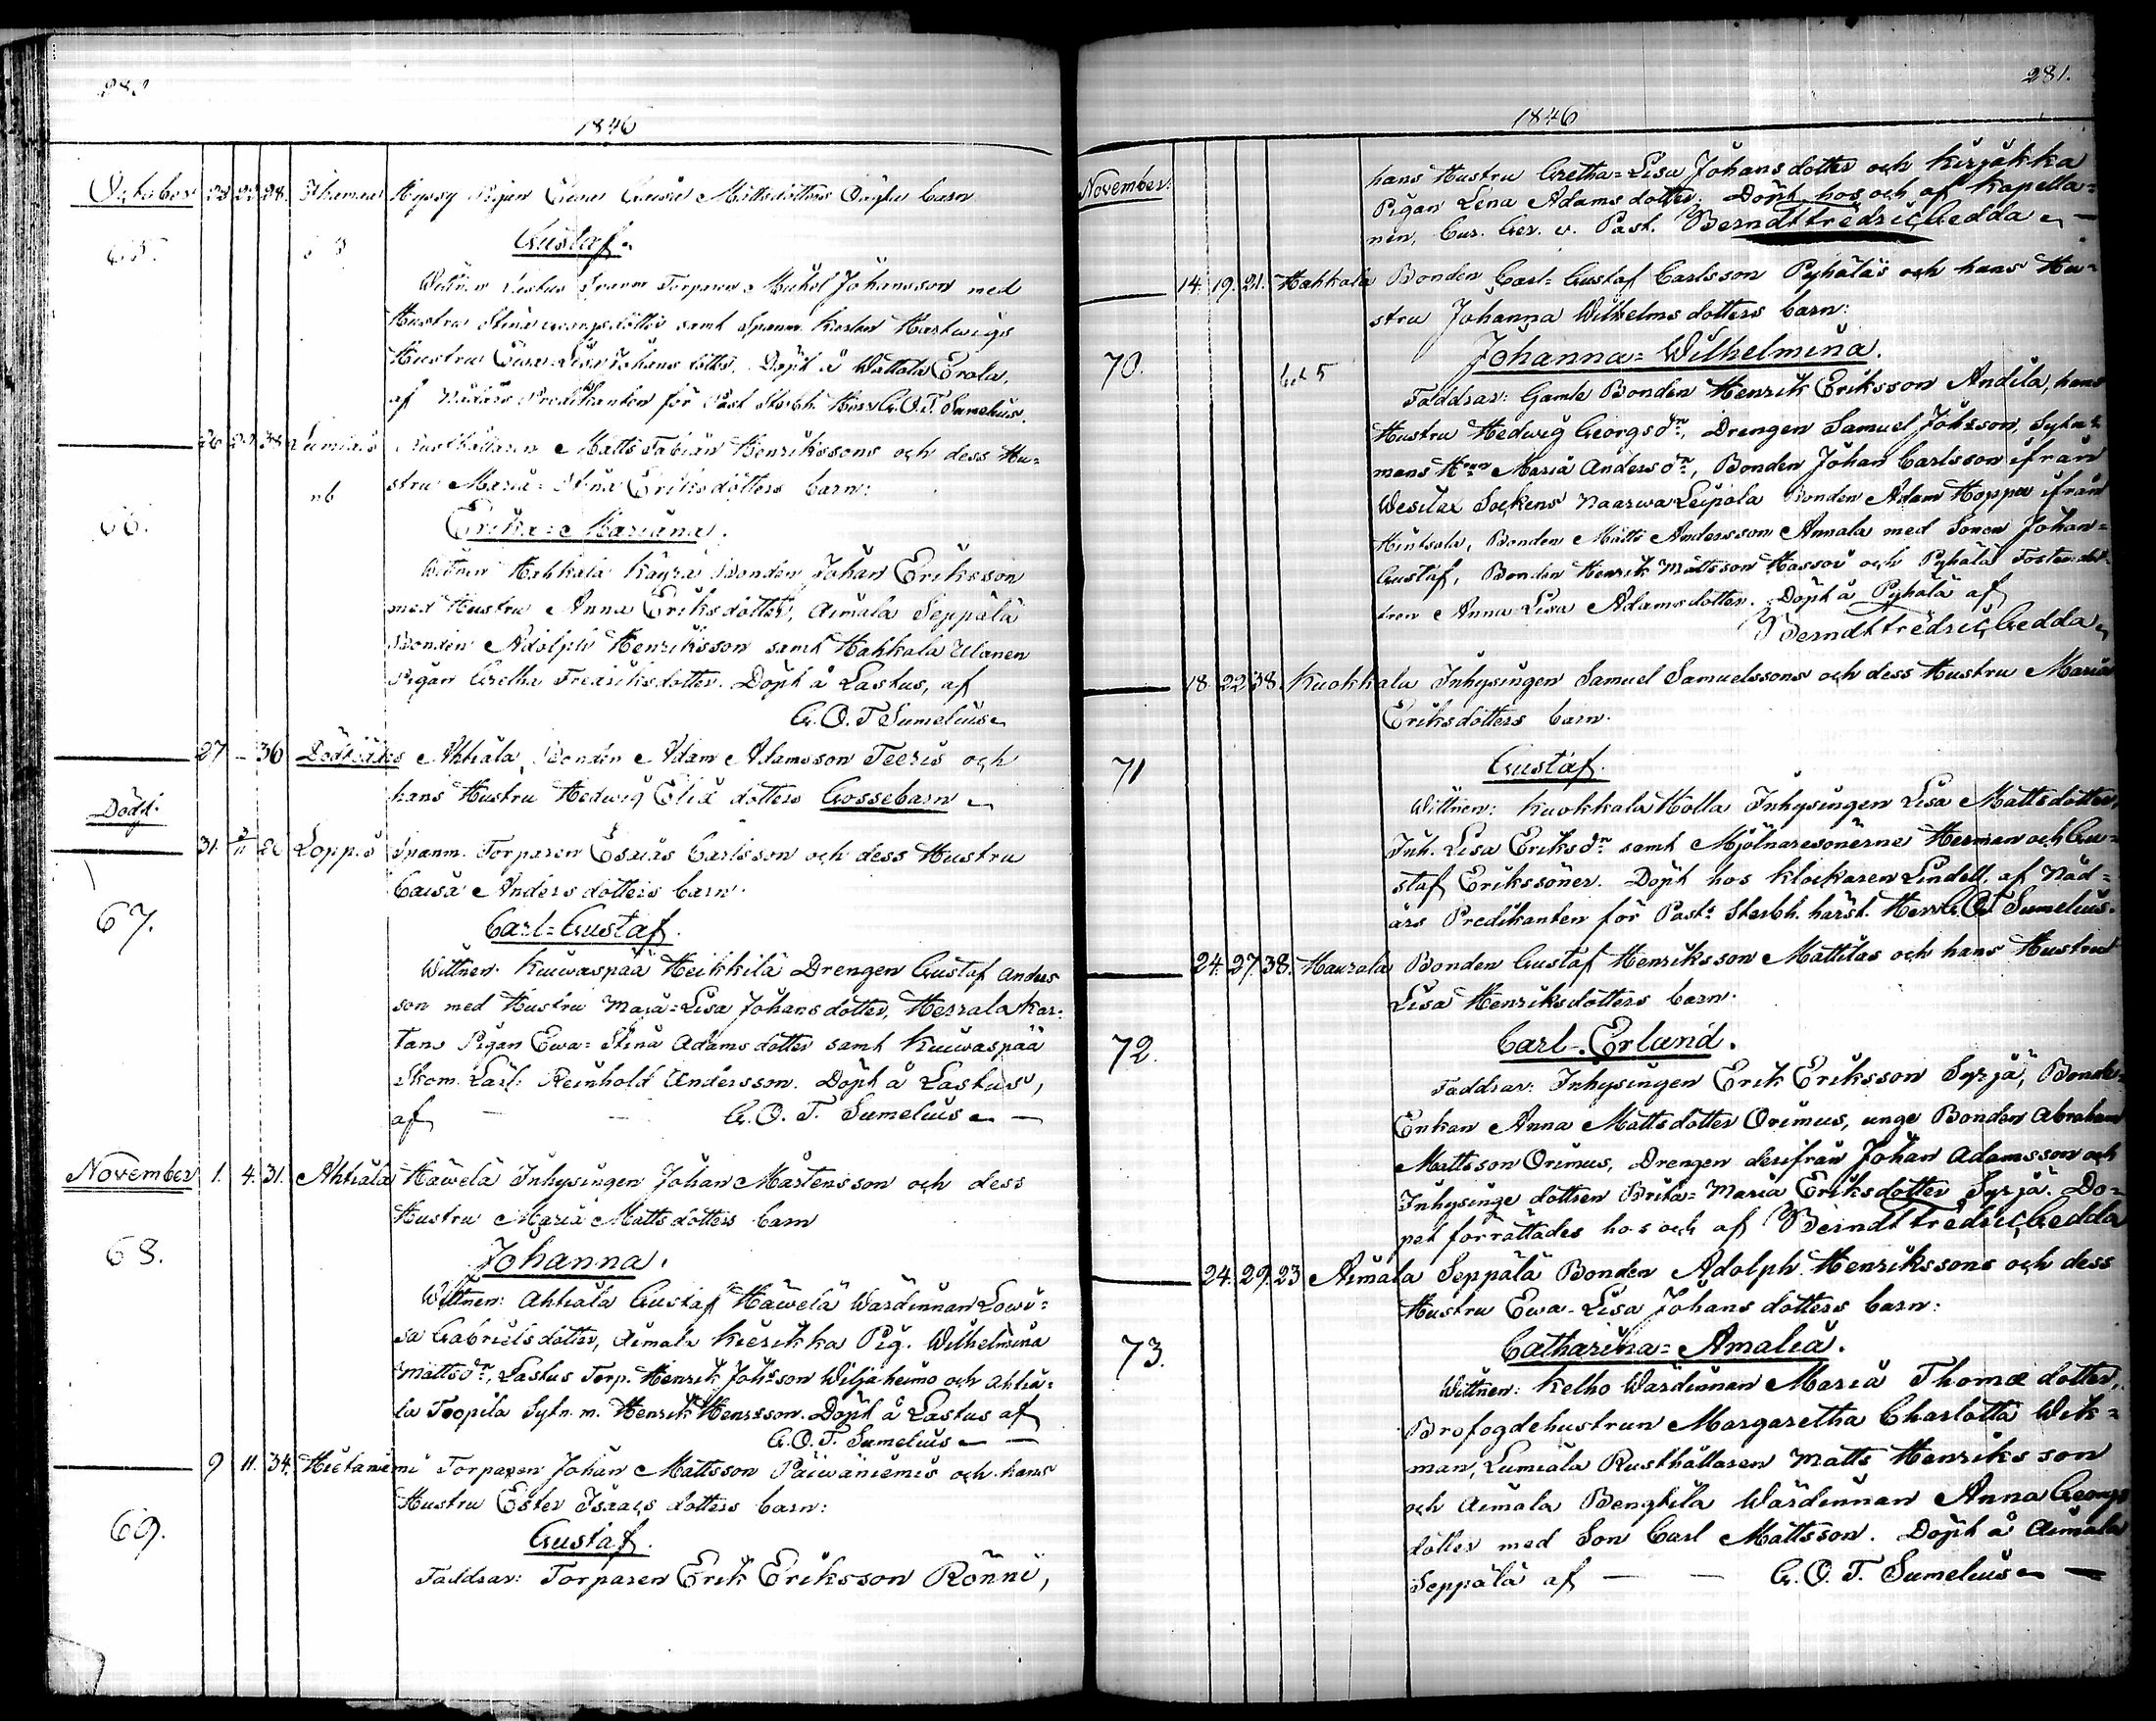 280
1846
October 23 27 28. Hyssy Pigan Mattsdotters Oägta barn
65.
Gustaf.
Wittnen Lastus Torparen Michel Johansson med
Hustru Stina Georgsdotter samt Hartwigs
Hustru Ewa Lisa Johans dotter. Döpt å Wottola Erola,
af Nådårs Predikanten för Past. Sterbh. Herr G.O.T. Sumelius.
26 27 38 Lumiais Rusthållaren Matts Fabian Henrikssons och dess Hu-
66.
stru Maria-Stina Eriksdotters barn:
Erika-Mariana.
Wittnen Hahkala Kayra Bonden Johan Eriksson
med Hustru Anna Eriksdotter, Aimala Seppälä
Bonden Adolph Henriksson samt Hahkala Ulanen
Pigan Gretha Fredriksdotter. Döpt å Lastus, af
G.O.T Sumelius
27 – 36 Ahtiala, Bonden Adam Adamsson Teeris och
Dödf.
hans Hustru Hedwig Eliæ dotters Gossebarn
31. 3/11 Loppis Spanm. Torparen Esaias Carlsson och dess Hustru
Caisa Anders dotters barn.
67.
Carl-Gustaf.
Wittnen. Kuuwaspää Heikkilä Drengen Gustaf Anders
son med Hustru Maja-Lisa Johans dotter, Herrala Kar-
tans Pigan Ewa-Stina Adams dotter samt Kuuwaspää
Skom. Lärl: Reinhold Andersson. Döpt å Lastus,
af – – G.O.T. Sumelius –
November 1. 4. 31. Ahtiala Hawela Inhysingen Johan Mårtensson och dess
Hustru Maria Matts dotters barn
68.
Johanna.
Wittnen: Ahtiala Gustaf Hawelä Wärdinnan Lowi-
sa Gabrielsdotter, Aimala Kierikka Pig. Wilhelmina
Mattsdr, Lastus Torp. Henrik Johsson Wiljaheimo och Ahtia-
la Toopila Sytn.m. Henrik Henrsson. Döpt å Lastus af
G.O.T. Sumelius –
9 11. 34. Hietaniemi Torparen Johan Mattsson Päiwäniemis och hans
Hustru Ester Isaacs dotters barn:
69.
Gustaf.
Faddrar: Torparen Erik Eriksson Rönni,
281.
1846
November:
hans Hustru Gretha-Lisa Johansdotter och Kirjakka
Pigan Lena Adams dotter. Döpt hos och af Kapella-
nen, Cur. Ger. v. Past. Berndt Fredric Gedda –
14. 19. 21. Hahkala Bonden Carl-Gustaf Carlsson Pyhäläs och hans Hu-
stru Johanna Wilhelms dotters barn:
70.
Johanna-Wilhelmina.
Faddrar: Gamle Bonden Henrik Eriksson Andila, hans
Hustru Hedwig Georgsdr, Drengen Samuel Johsson, Sytn-
mans Hrun Maria Andersdr, Bonden Johan Carlsson ifrån
Wesilax Sockens Naarwa Leipola Bonden Adam Hoppu ifrån
Hintsala, Bonden Matts Andersson Annala med Sonen Johan-
Gustaf, Bonden Henrik Mattsson Hassoi och Pyhälä Fosterdot-
tren Anna-Lisa Adamsdotter. Döpt å Pyhälä af
Berndt Fredric Gedda
18. 22 38. Kuokkala Inhysingen Samuel Samuelssons och dess Hustru Maria
Eriksdotters barn.
71
Gustaf.
Wittnen: Kuokkala Holla Inhysingen Lisa Mattsdotter,
Inh. Lisa Eriksdr samt Mjölnaresönerne Herman och Gu-
staf Erikssöner. Döpt hos Klockaren Lindell, af Nåd-
års Predikanten för Past: Sterbh. härst. Herr G.O.T Sumelius.
24. 27. 38. Haurala Bonden Gustaf Henriksson Mattilas och hans Hustru
Lisa Henriksdotters barn.
72.
Carl-Erland.
Faddrar: Inhysingen Erik Eriksson Syrjä, Bonde-
Enkan Anna Mattsdotter Orimus, unge Bonden Abraham
Mattsson Orimus, Drengen derifrån Johan Adamsson och
Inhysinge dottren Brita-Maria Eriksdotter Syrjä. Do-
pet förrättades hos och af Berndt Fredric Gedda
24. 29. 23 Aimala Seppälä Bonden Adolph Henrikssons och dess
Hustru Ewa-Lisa Johans dotters barn:
73.
Catharina-Amalia.
Wittnen: Kelho Wärdinnan Maria Thomæ dotter,
Brofogdehustrun Margaretha Charlotta Wik-
man, Lumiala Rusthållaren Matts Henriksson
och Aimala Bengtila Wärdinnan Anna Georgs
dotter med Son Carl Mattsson. Döpt å Aimala
Seppälä af – – G.O.T. Sumelius –